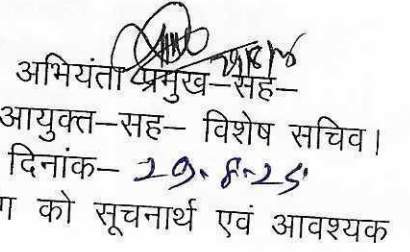 अभियंता प्रमुख–सह–
आयुक्त–सह– विशेष सचिव।
दिनांक– 29.8.25
को सूचनार्थ एवं आवश्यक